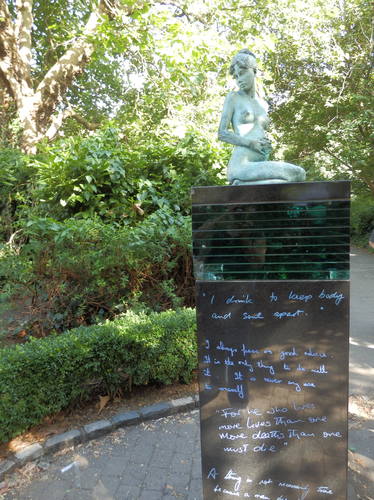 "I drink to keep body
and soul apart."
I always pass on good advice.
It is the only thing to do with
it. It is never any use
to oneself
"For he who lives
more lives than one
More deaths than one
must die"
A thing is not necessarily true
because a man dies